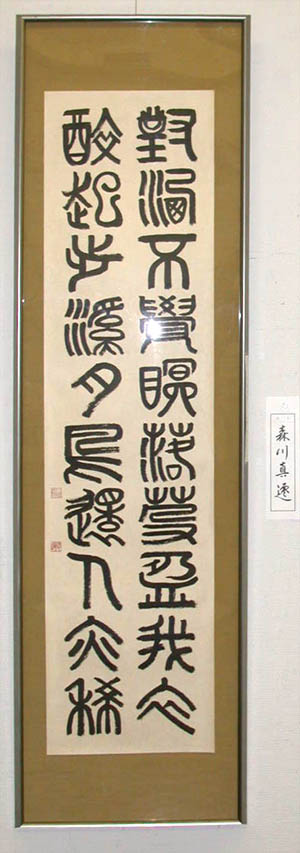 對酒不覺暝落花盈我衣
醉起步溪月鳥還人亦稀
森川真